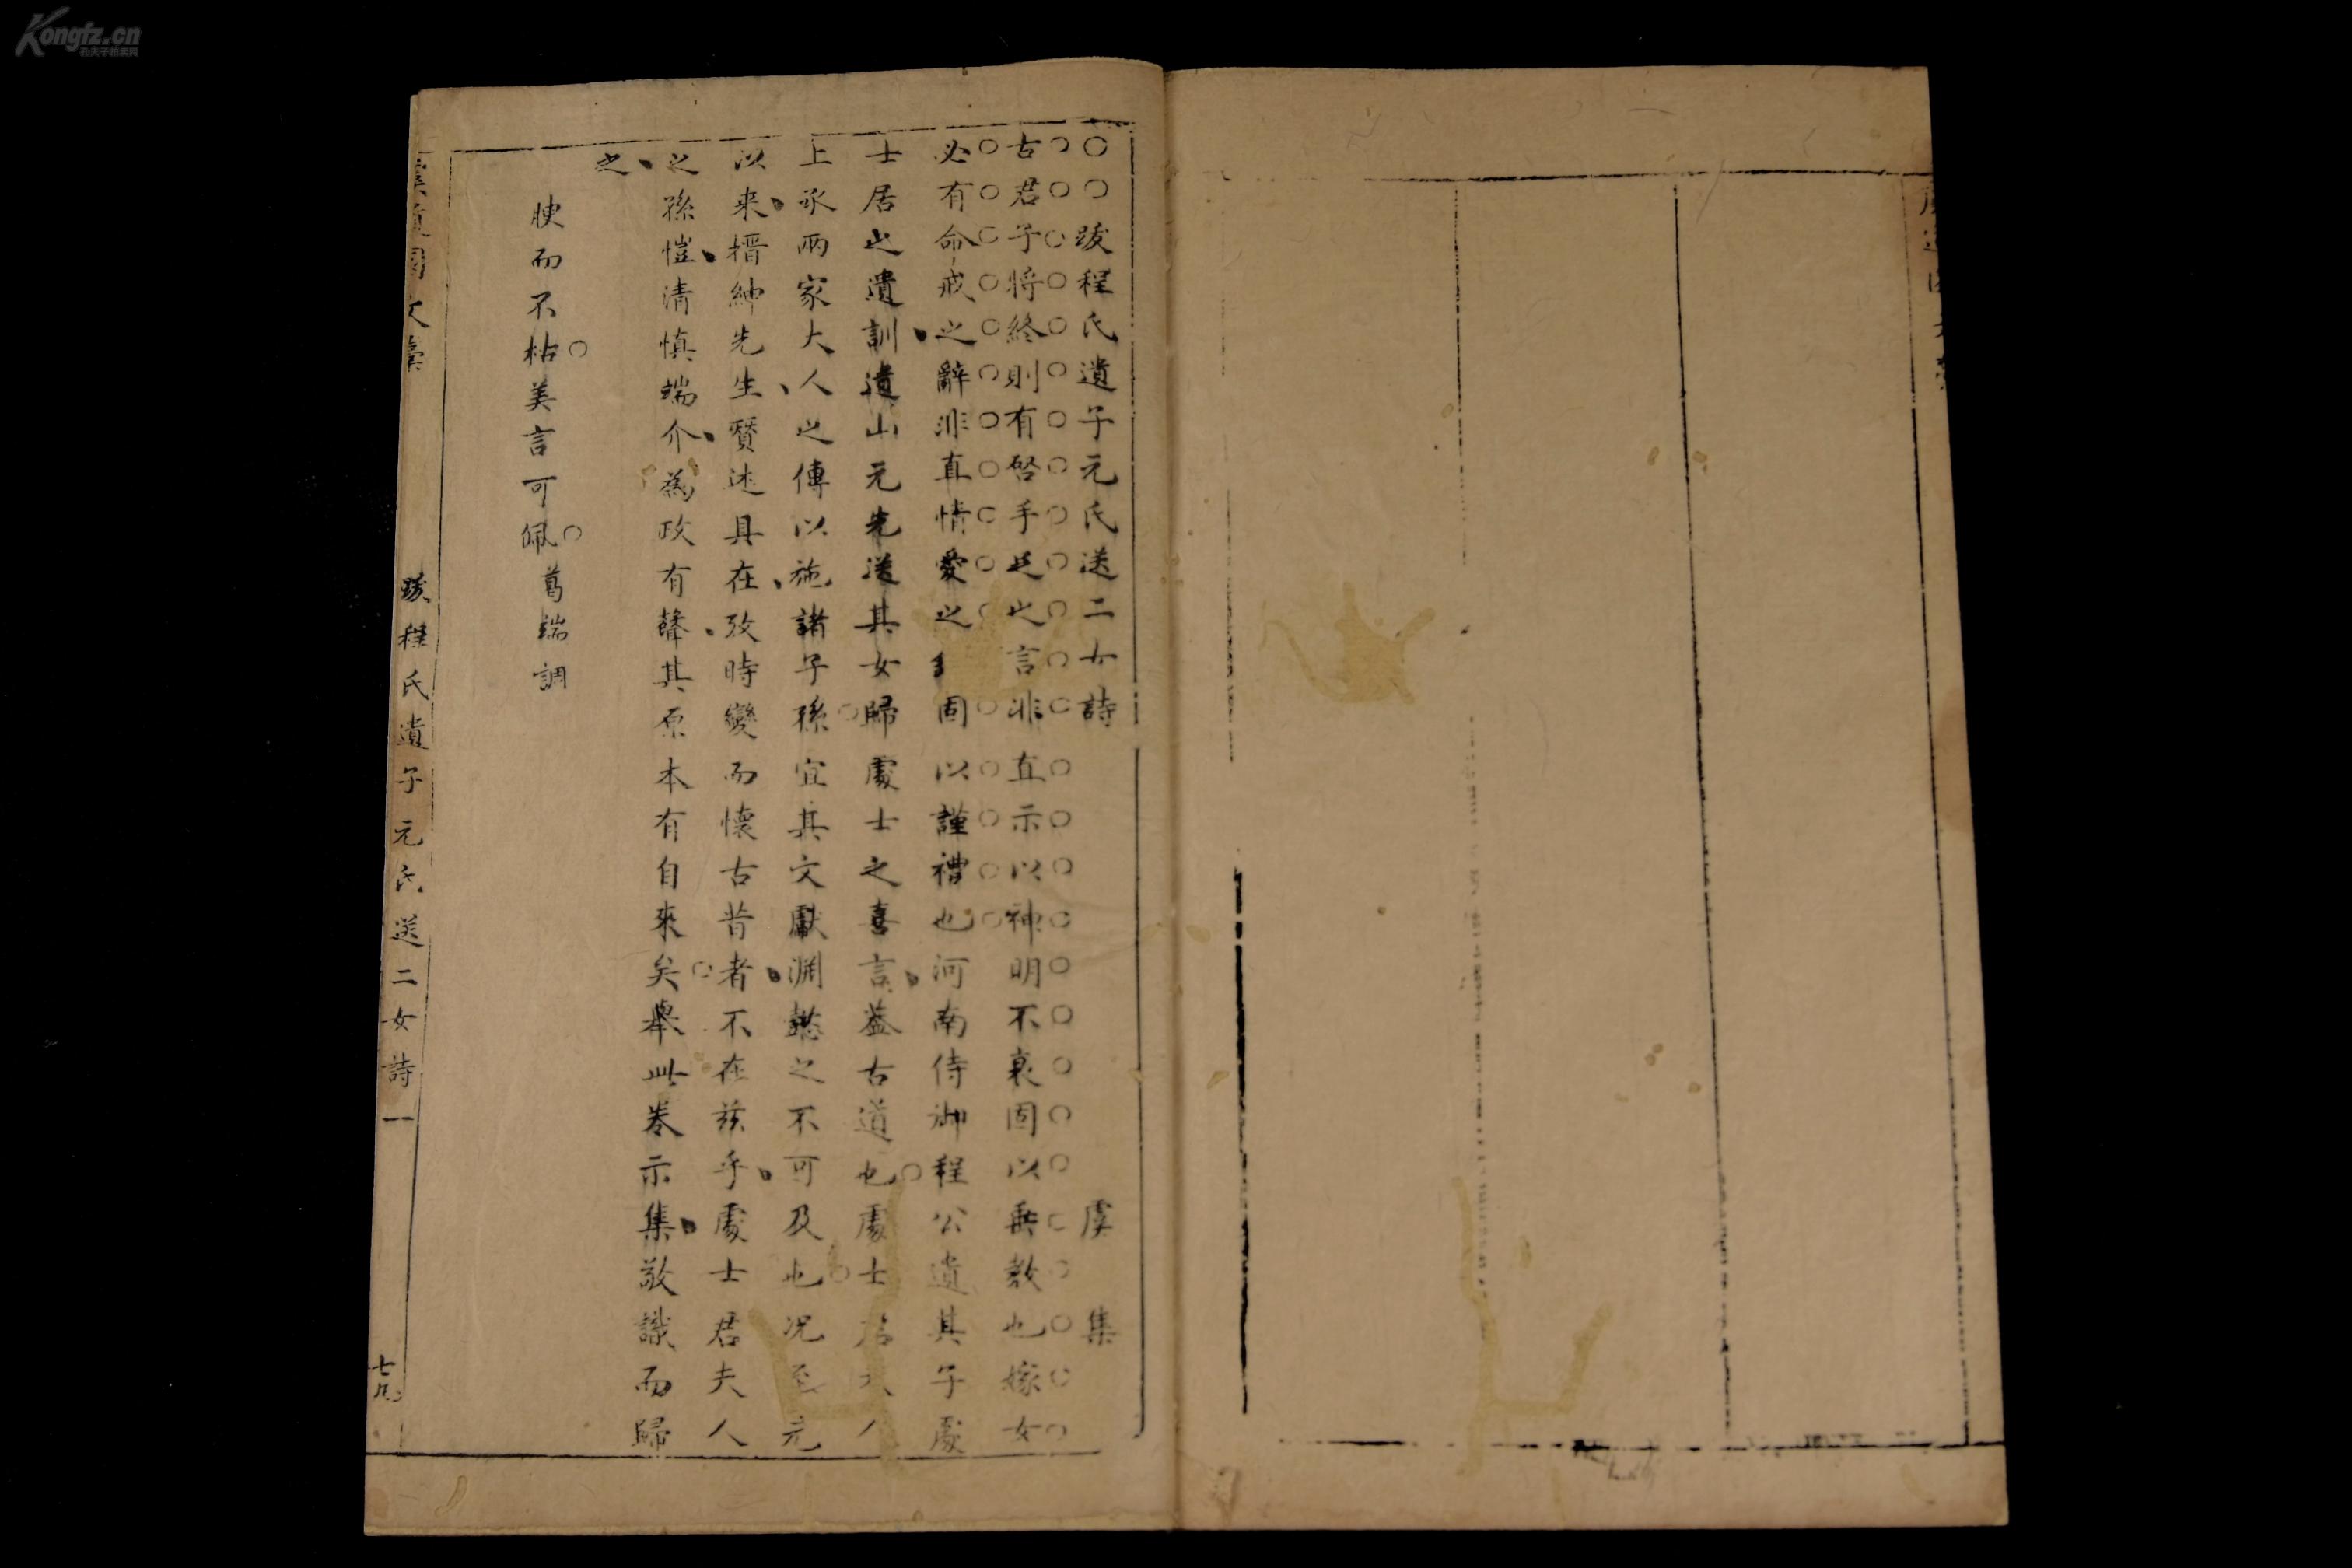 Kongfz.cn
孔夫子拍卖网
○○跋程氏遺子元氏送二女詩 虞集
古君子將終則有啓手足之言非直示以神明不衰固以垂教也嫁女
必有命戒之辭非直情愛之固以謹禮也河南侍御程公遺其子處
士居之遺訓遺山元先送其女歸處士之喜言蓋古道也處士君夫人
上承兩家大人之傳以施諸子孫宜其文獻淵懿之不可及也况至元
以来搢紳先生贒述具在攷時變而懷古昔者不在兹乎處士君夫人
之孫愷清慎端介為政有聲其原本有自來矣舉此卷示集敬識而歸
之
腴而不枯美言可佩葛端調
園文
跋程氏遺子元氏送二女詩 一